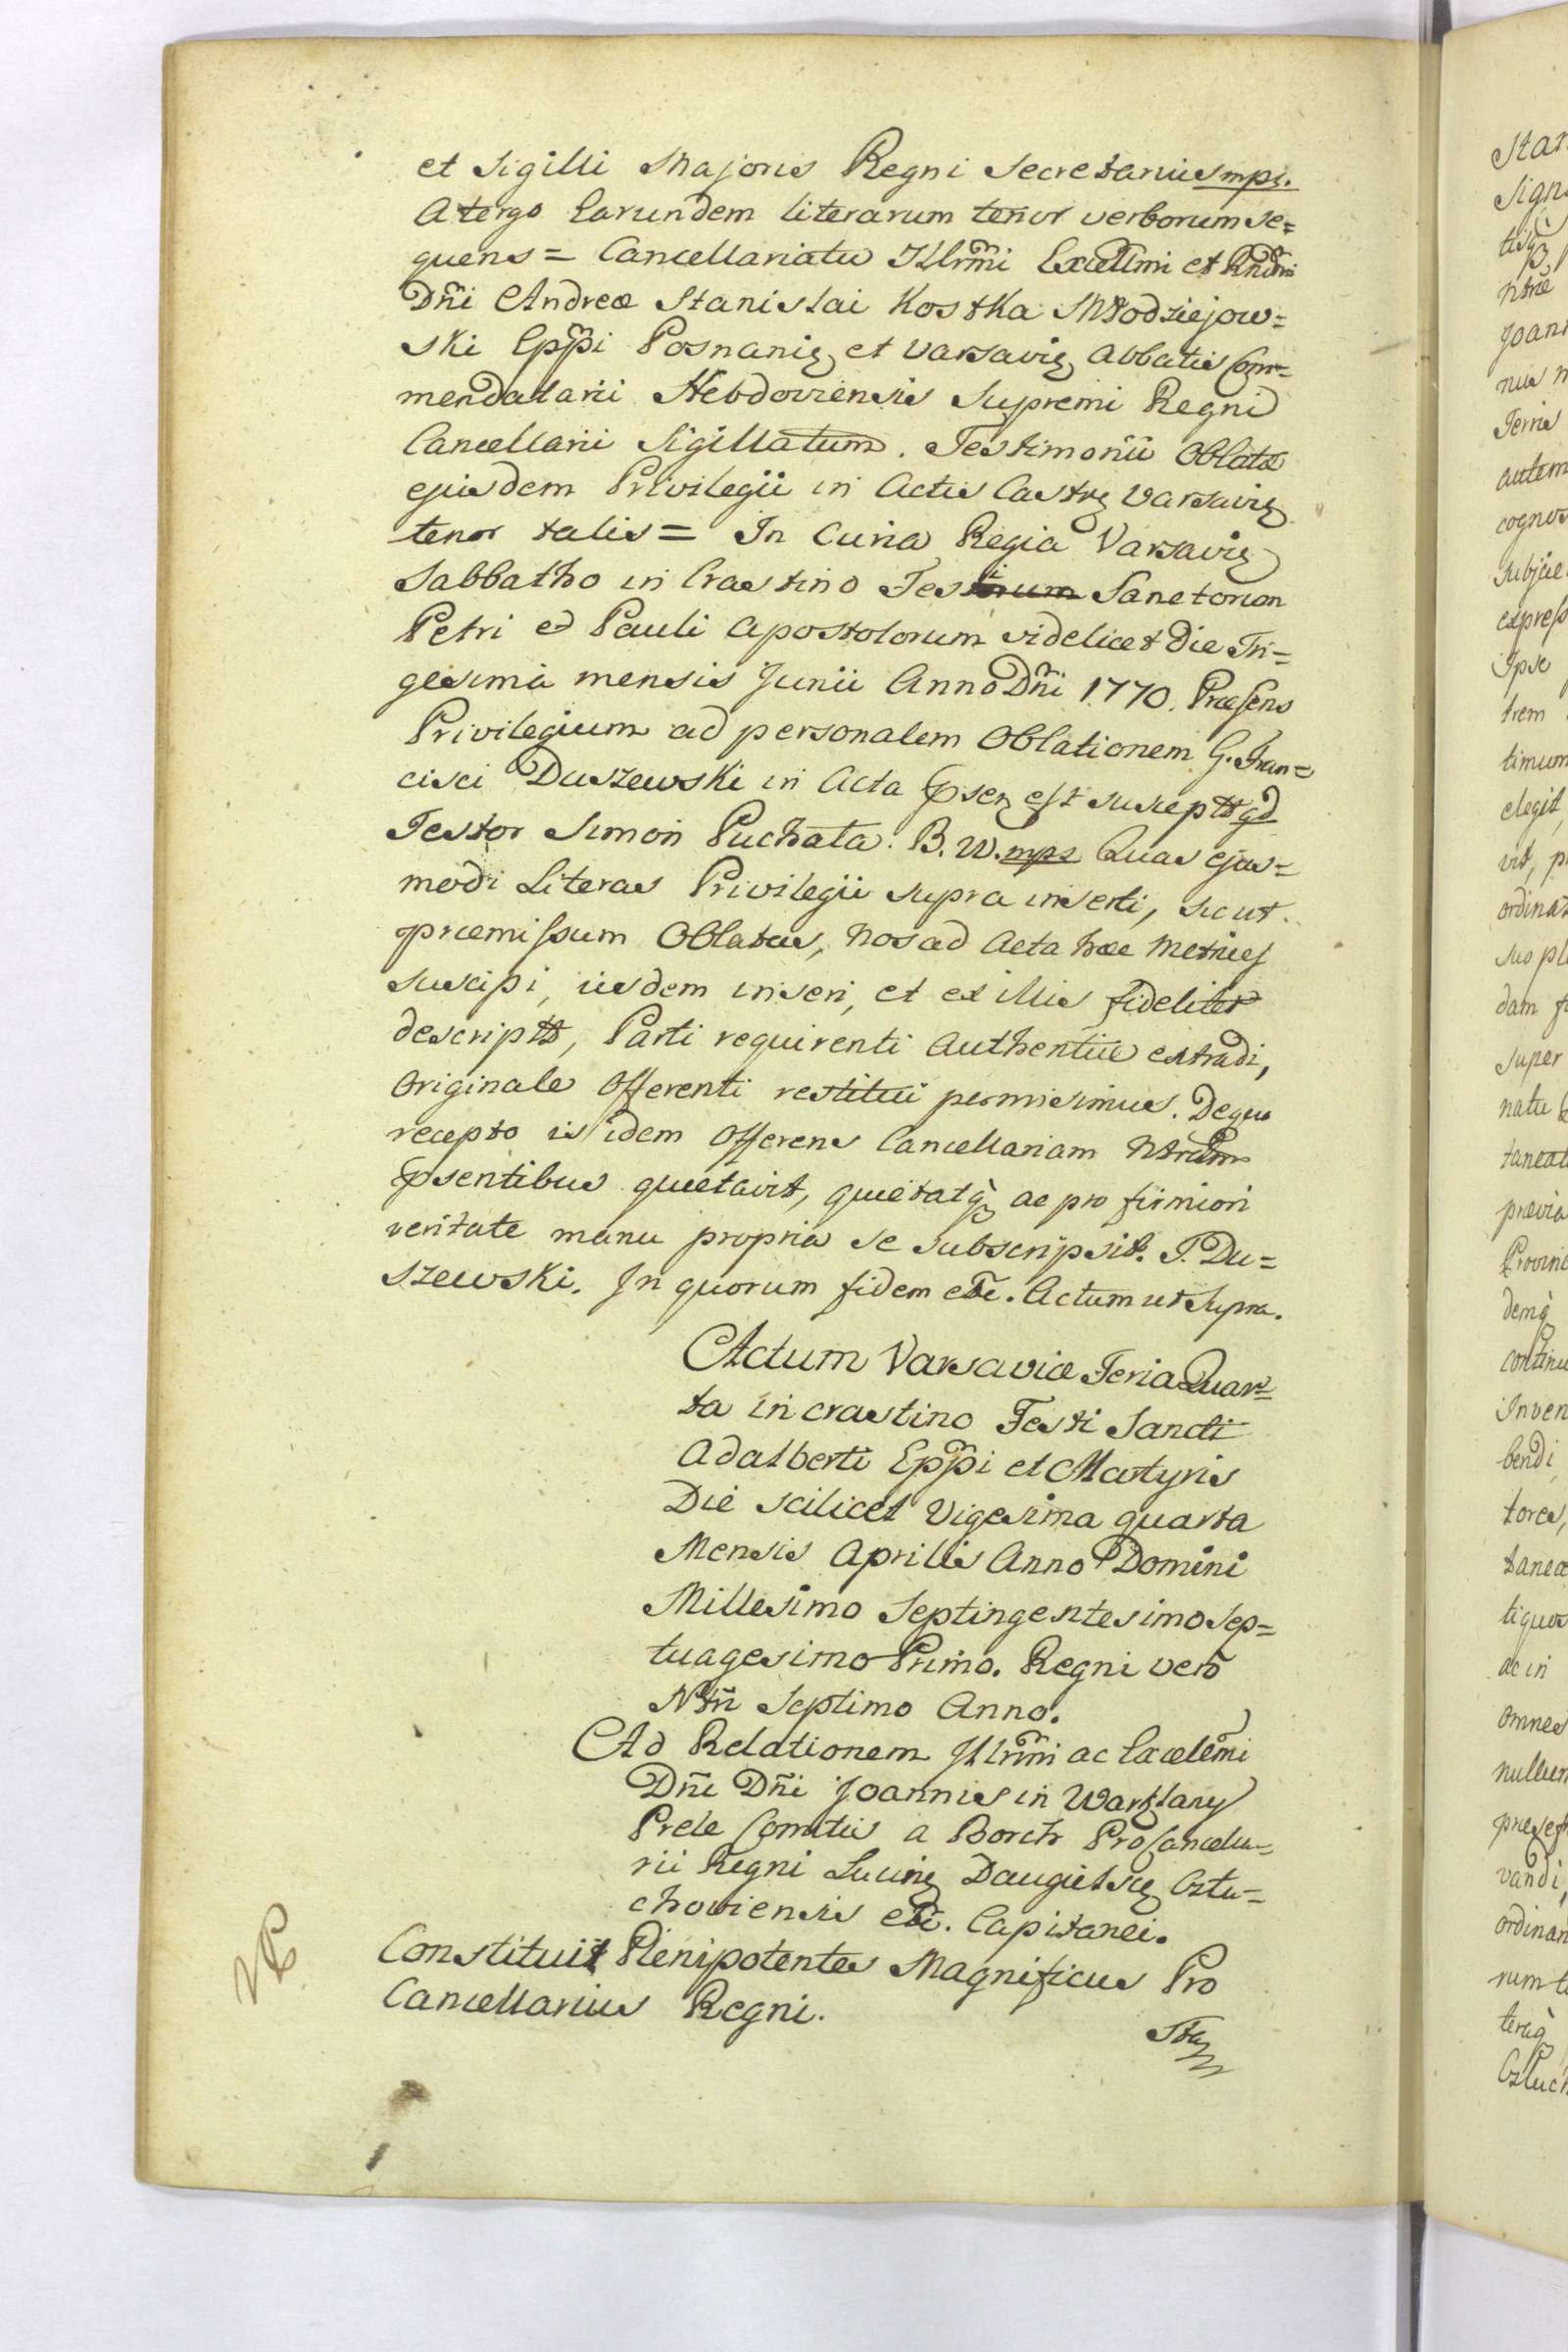 et Sigilli Majoris Regni Secretarius mpr.
A tergo Earundem literarum tenor verborum se=
quens = Cancellariatu Illrm̃i Excellmi et Rndm̃i
Dñi Andreæ Stanislai Kostka Młodziejow=
ski Epp̃i Posnanię et Varsavię Abbatis Com=
mendatarii Hebdoviensis Supremi Regni
Cancellarii Sigillatum. Testimonii Oblatæ
ejusdem Privilegii in Actis Castrę Varsavię
tenor talis = In Curia Regia Varsavię
Sabbatho in Crastino Festi Sanctorum
Petri et Pauli Apostolorum videlicet Die Tri=
gesima mensis Junii Anno Dñi 1770. Præsens
Privilegium ad personalem Oblationem G. Fran=
cisci Duszewski in Acta psen est suscept qd
Testor Simon Puchała. B. W. mpr Quas ejus=
modi Literas Privilegii supra inserti, sicut
præmissum Oblatas, nos ad Acta hæc Metrices
suscipi, iisdem inseri, et ex illis fideliter
descript, Parti requirenti Authentice extradi,
Originale Offerenti restitui permisimus. De quo
recepto is idem Offerens Cancellariam Ntram
psentibus quietavit, quietatq̀ ac pro firmiori
veritate manu propria se subscripsit. F. Du=
szewski. In quorum fidem etc. Actum ut Supra.
Actum Varsaviæ Feria Quar=
ta in crastino Festi Sancti
Adalberti Epp̃i et Martyris
Die scilicet Vigesima quarta
Mensis Aprilis Anno Domini
Millesimo Septingentesimo Sep=
tuagesimo Primo. Regni vero
Ntri Septimo Anno.
Ad Relationem Illrm̃i ac Excelem̃i
Dñi Dñi Joannis in Warklany
Prele Comitis a Borch Pro Cancella=
rii Regni Lucinę Daugielsię Cztu=
choviensis etc. Capitanei.
Constituit Plenipotentes Magnificus Pro
Cancellarius Regni.
Sta